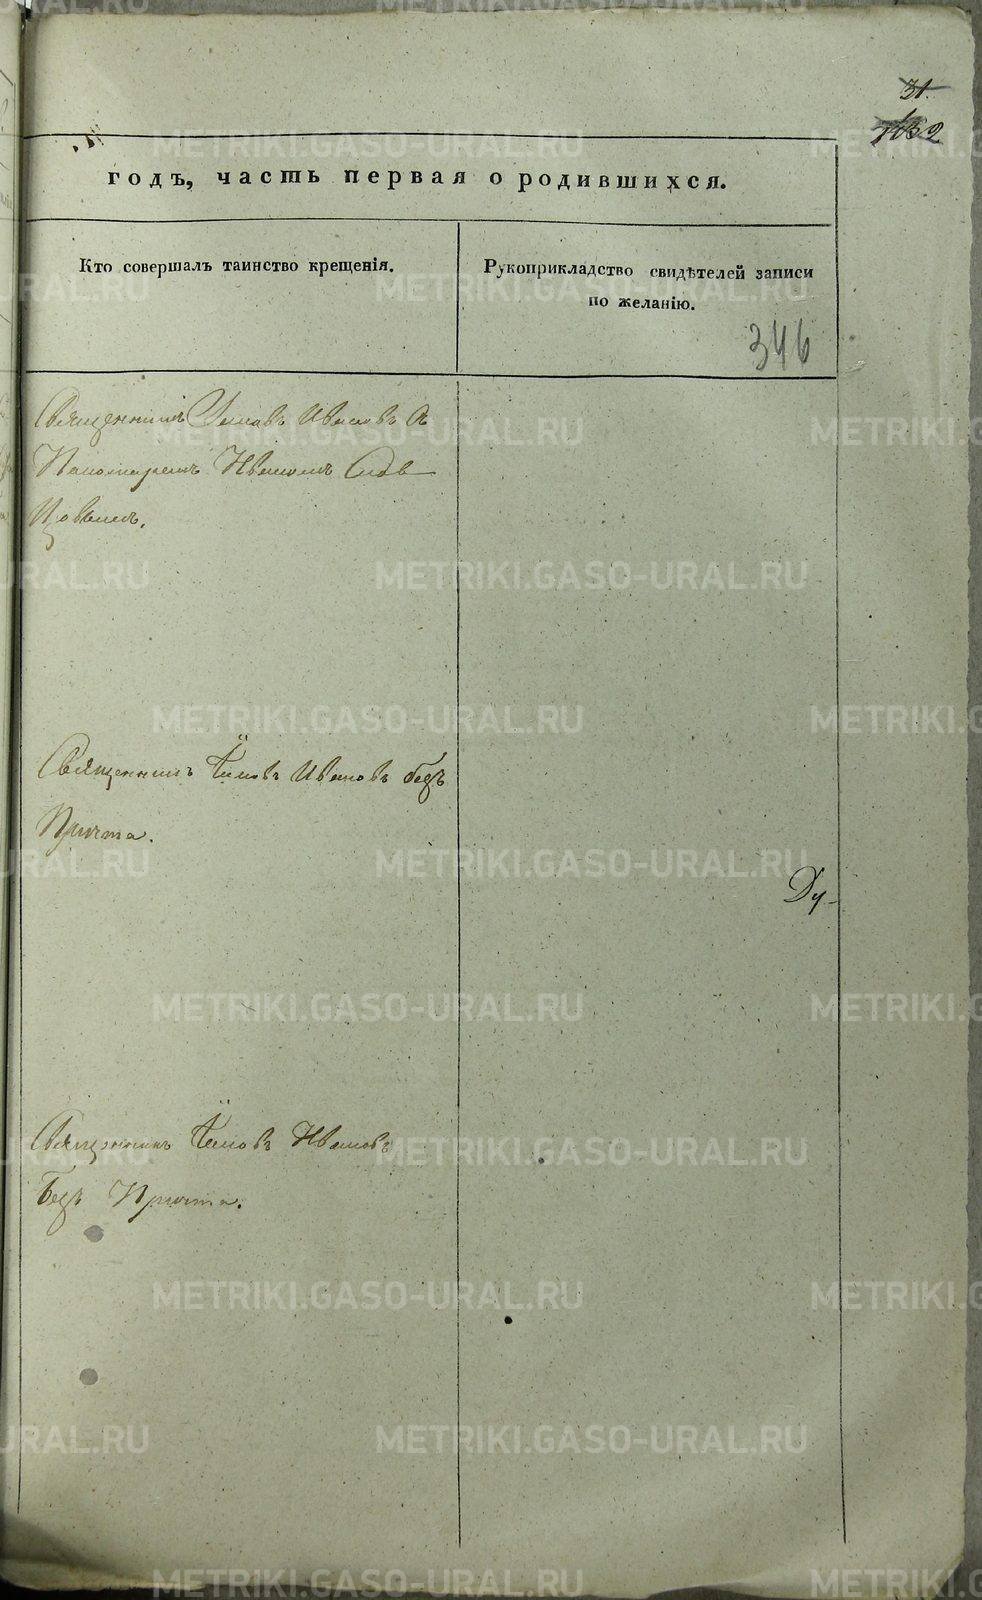 31.
годъ, часть первая о родившихся.
Кто совершалъ таинство крещенія.
Рукоприкладство свидѣтелей записи
по желанію.
346
Священникъ Іаковъ Ивановъ съ
Пономаремъ Иваномъ Слов
цовымъ.
Священникъ Іаковъ Ивановъ безъ
Причта.
Ду-
Священникъ Іаковъ Ивановъ
безъ Причта.
METRIKI.GASO-URAL.RU